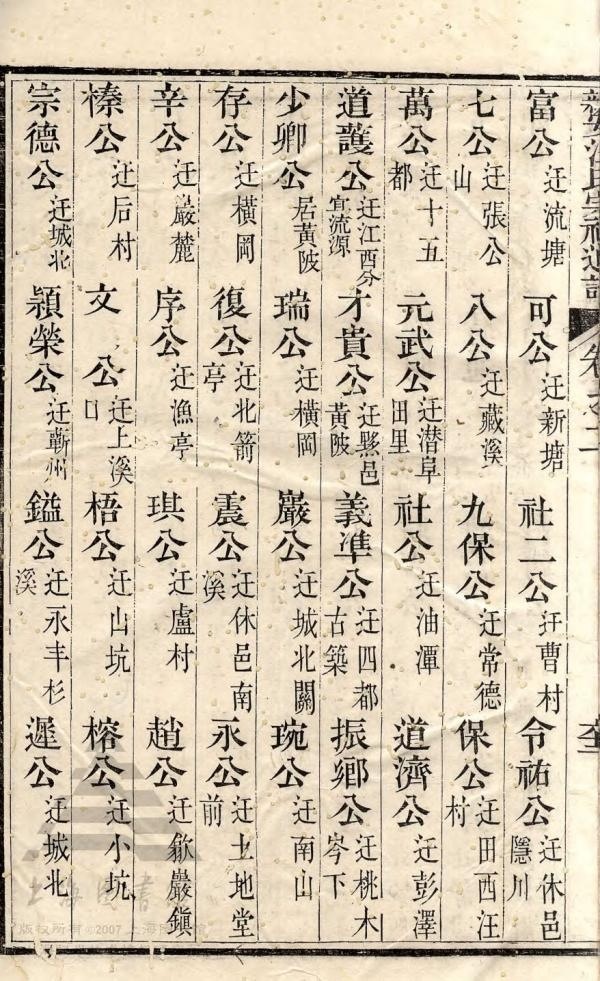 新安汪氏宗祠通譜 卷之二
富公迁流塘 可公迁新塘 社二公迁曹村 令祐公迁休邑隱川
七公迁張公山 八公迁藏溪 九保公迁常德 保公迁田西汪村
萬公迁十五都 元武公迁潜阜田里 社公迁油潭 道濟公迁彭澤
道護公迁江西分寧流源 才貴公迁黟邑黃陂 義準公迁四都古築 振鄉公迁桃木岑下
少卿公居黃陂 瑞公迁橫岡 巖公迁城北關 琬公迁南山
存公迁橫岡 復公迁北箭亭 震公迁休邑南溪 永公迁土地堂前
辛公迁巖麓 序公迁漁亭 琪公迁盧村 趙公迁歙巖鎮
榛公迁后村 文公迁上溪口 梧公迁山坑 榕公迁小坑
宗德公迁城北 穎榮公迁蘄州 鎰公迁永丰杉溪 遲公迁城北
上海圖書館
版权所有©2007 上海图书馆